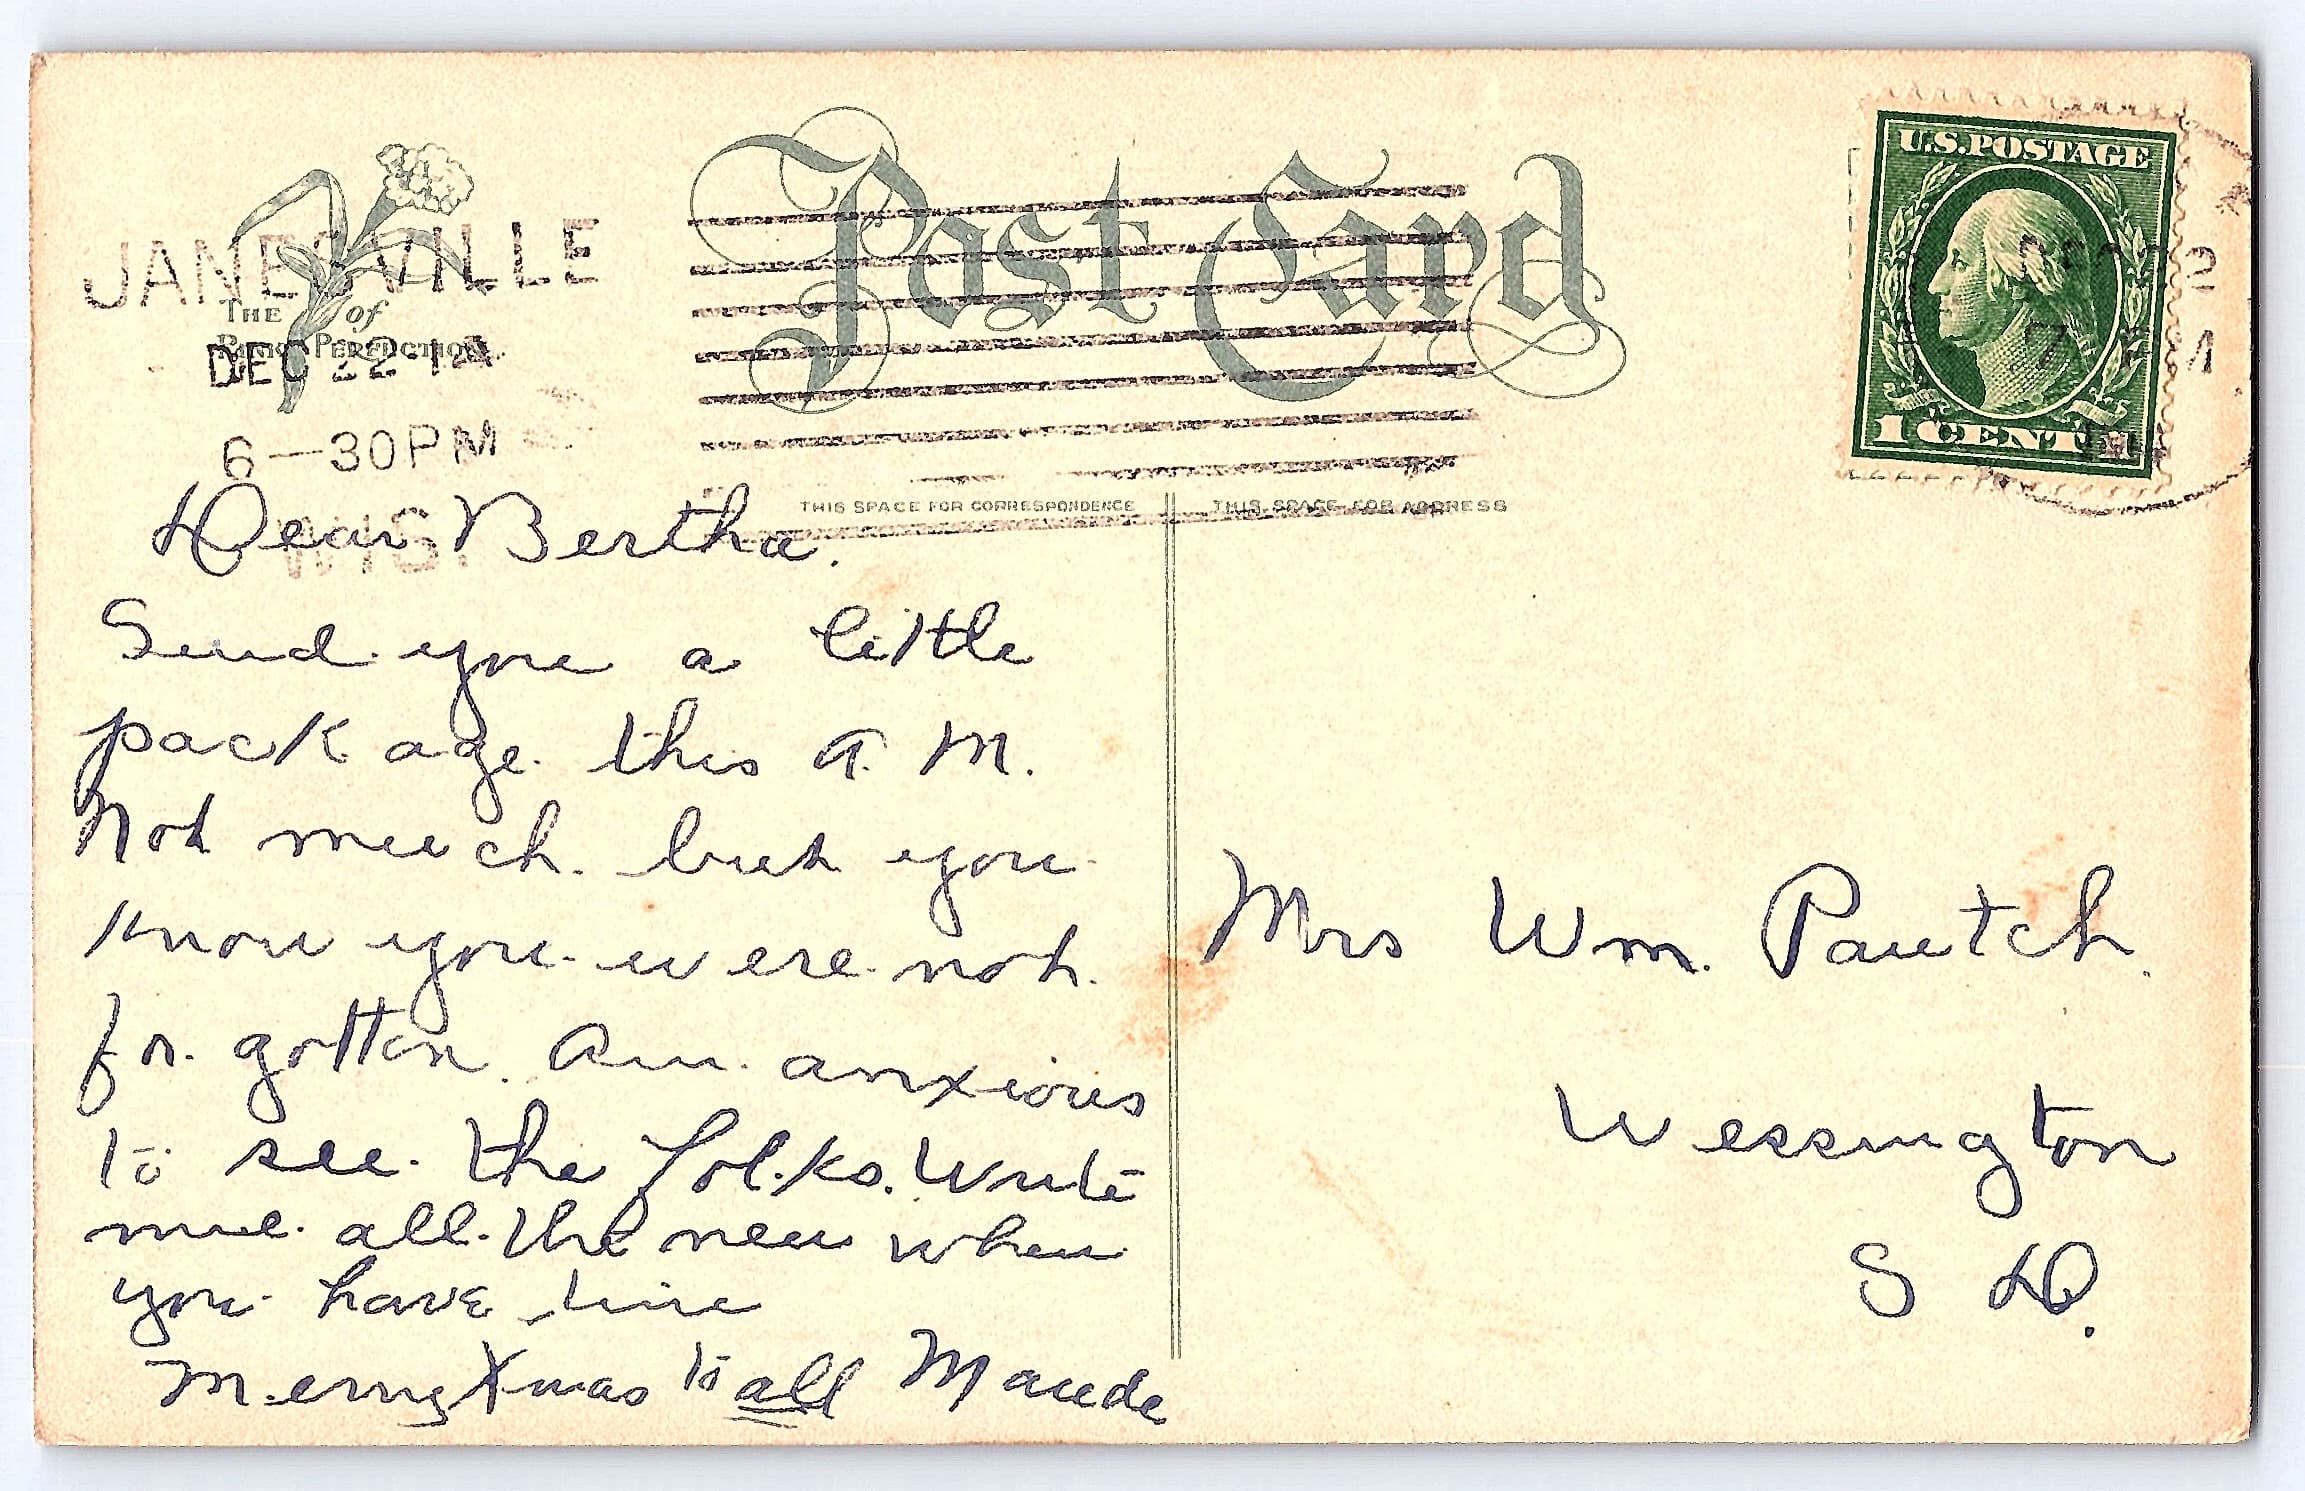 JANESVILLE
THE of
PINK PERFECTION
DEC 22
6—30PM
WIS.
Post Card
U.S. POSTAGE
1 CENT
THIS SPACE FOR CORRESPONDENCE
THIS SPACE FOR ADDRESS
Dear Bertha.
Send you a little
package this A. M.
Not much. but you
know you were not
for gotton. Am anxious
to see the folks. Write
me all the new when
you have time
Merry Xmas to all Maude
Mrs Wm. Pautch.
Wessington
S D.